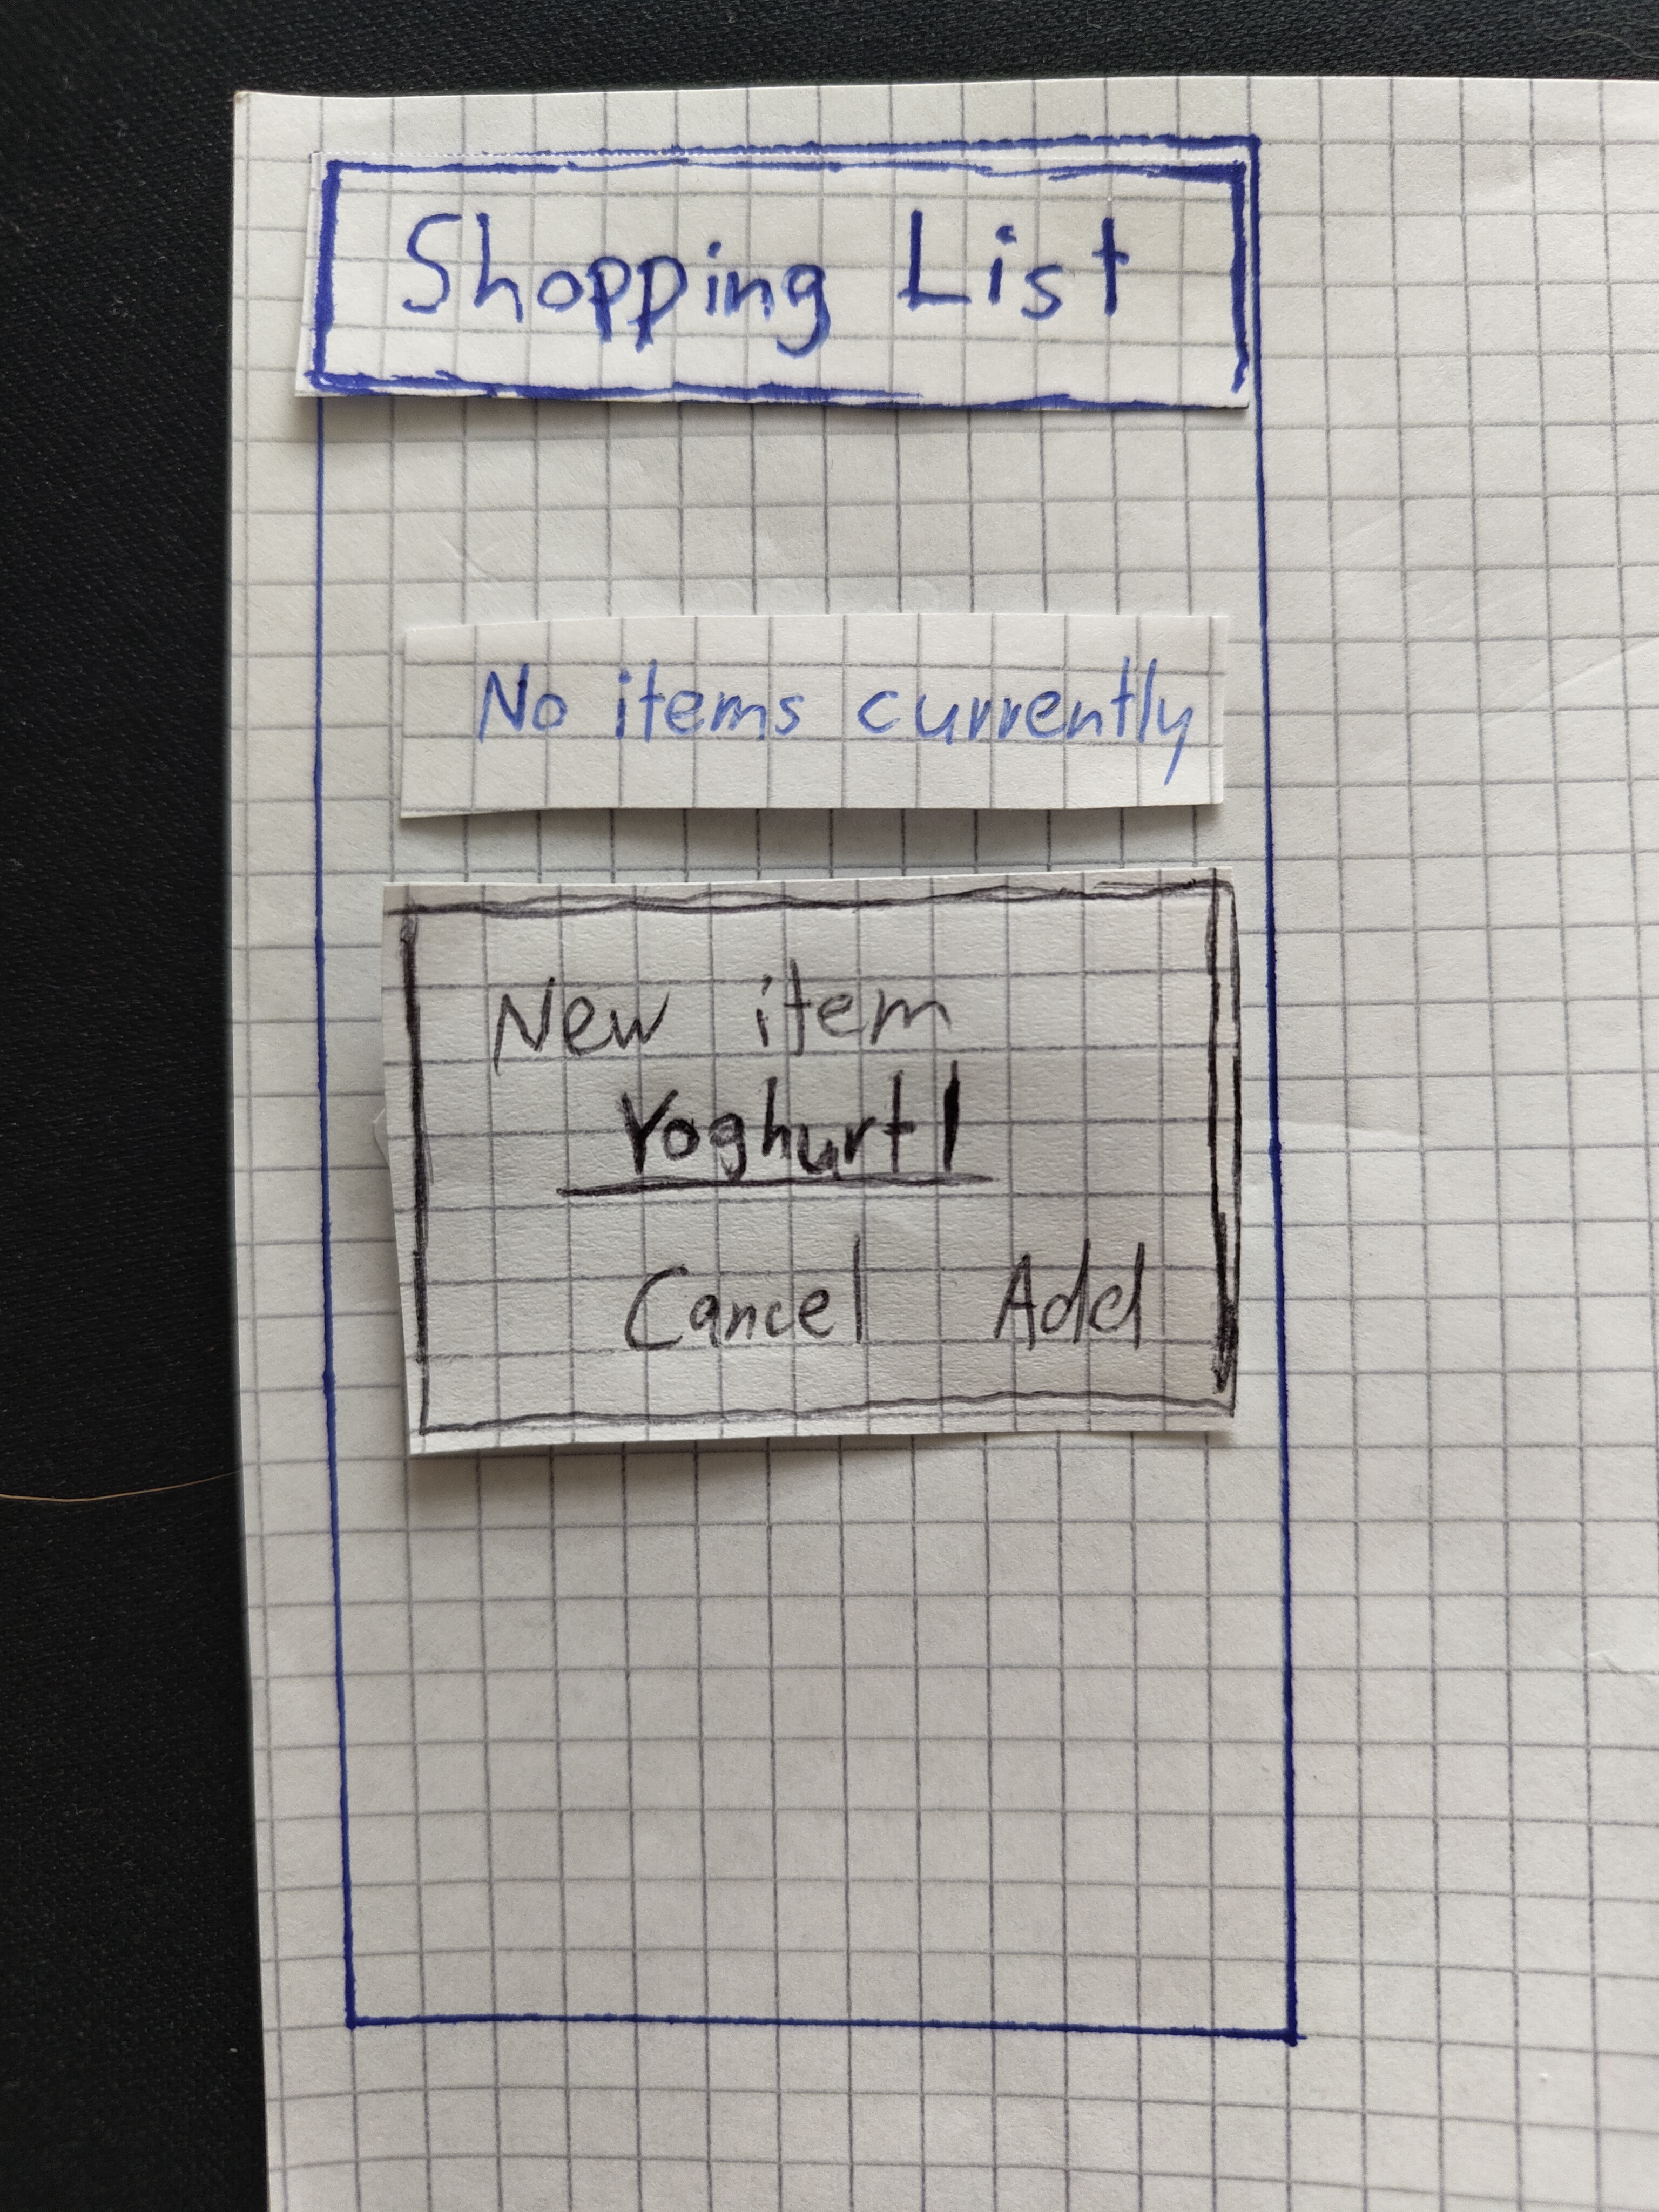 Shopping List
No items currently
New item
Yoghurt|
Cancel Add